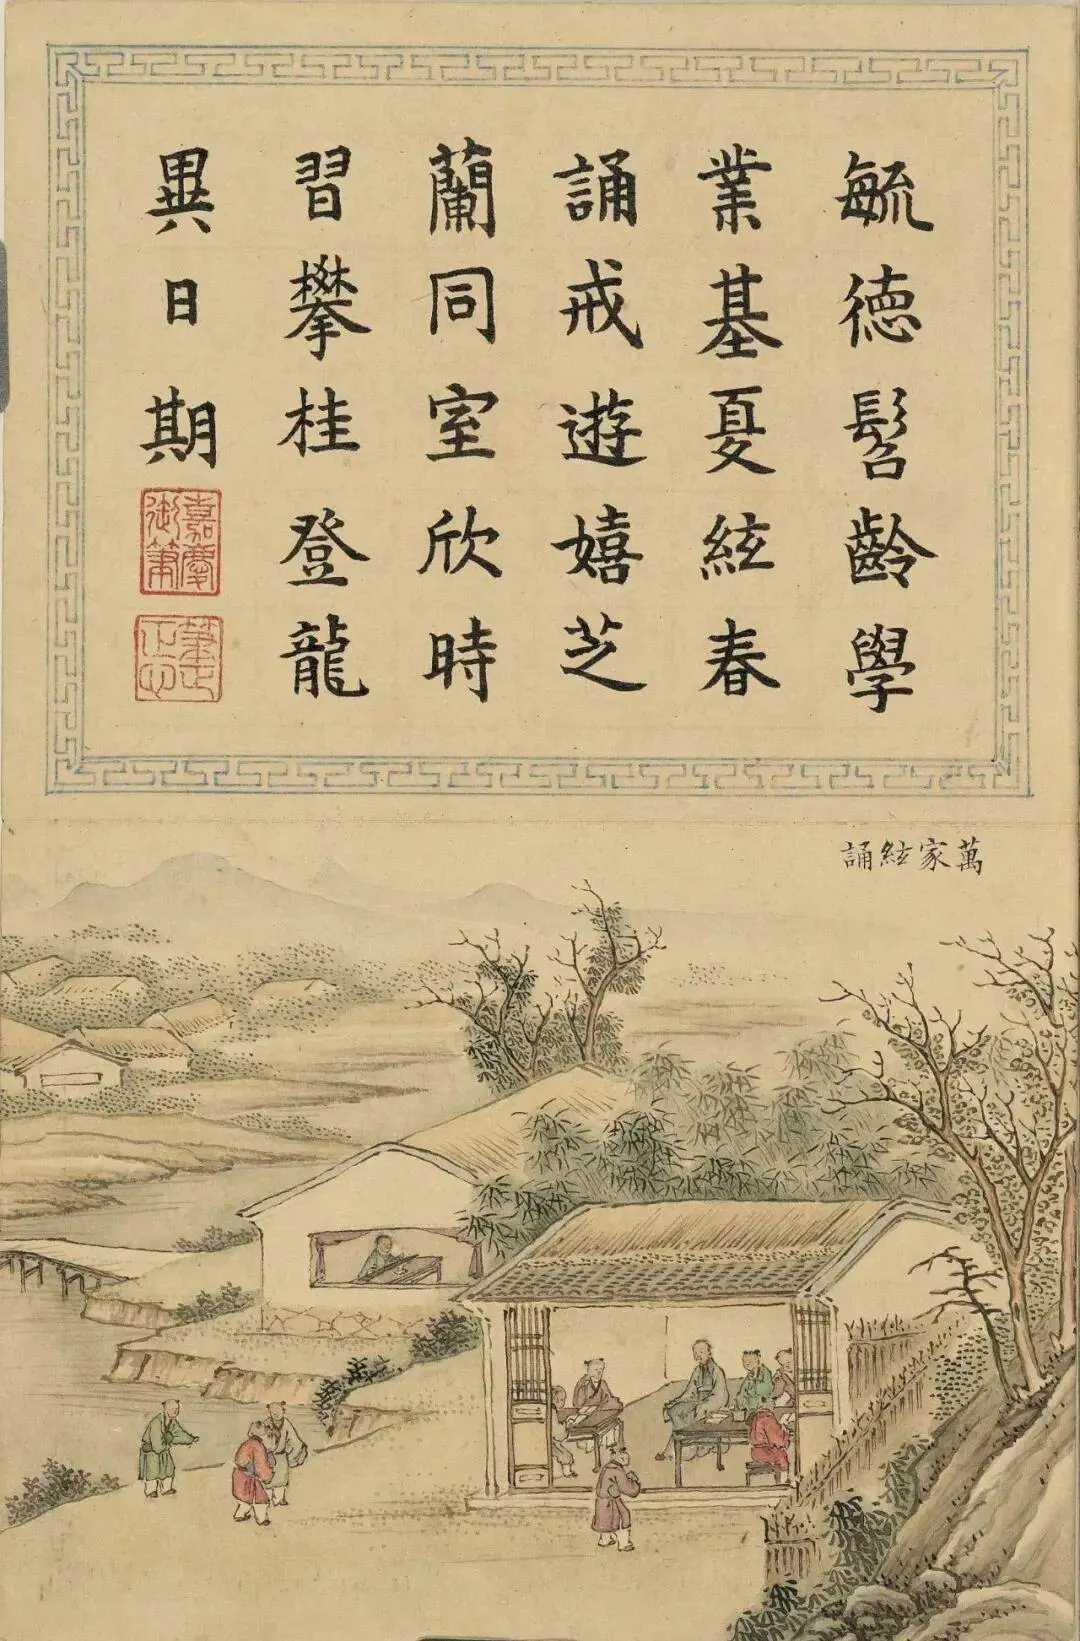 毓德髫齡學
業基夏絃春
誦戒遊嬉芝
蘭同室欣時
習攀桂登龍
異日期
嘉慶
御筆
筆端
正心
萬家絃誦